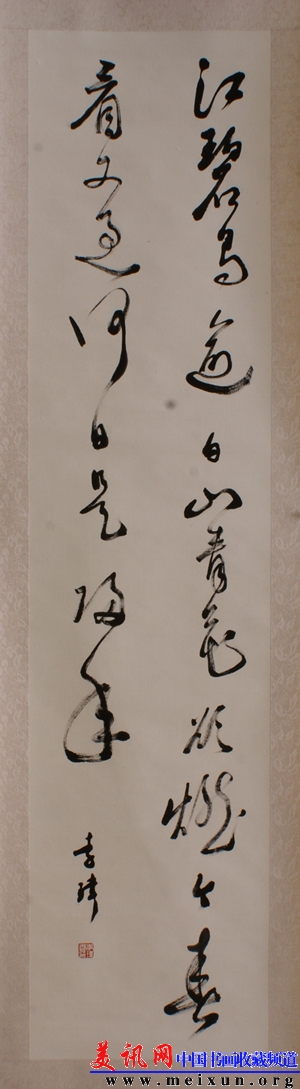 江碧鳥逾白山青花欲燃今春
看又過何日是歸年
李鐸
美讯网中国书画收藏频道
www.meixun.org